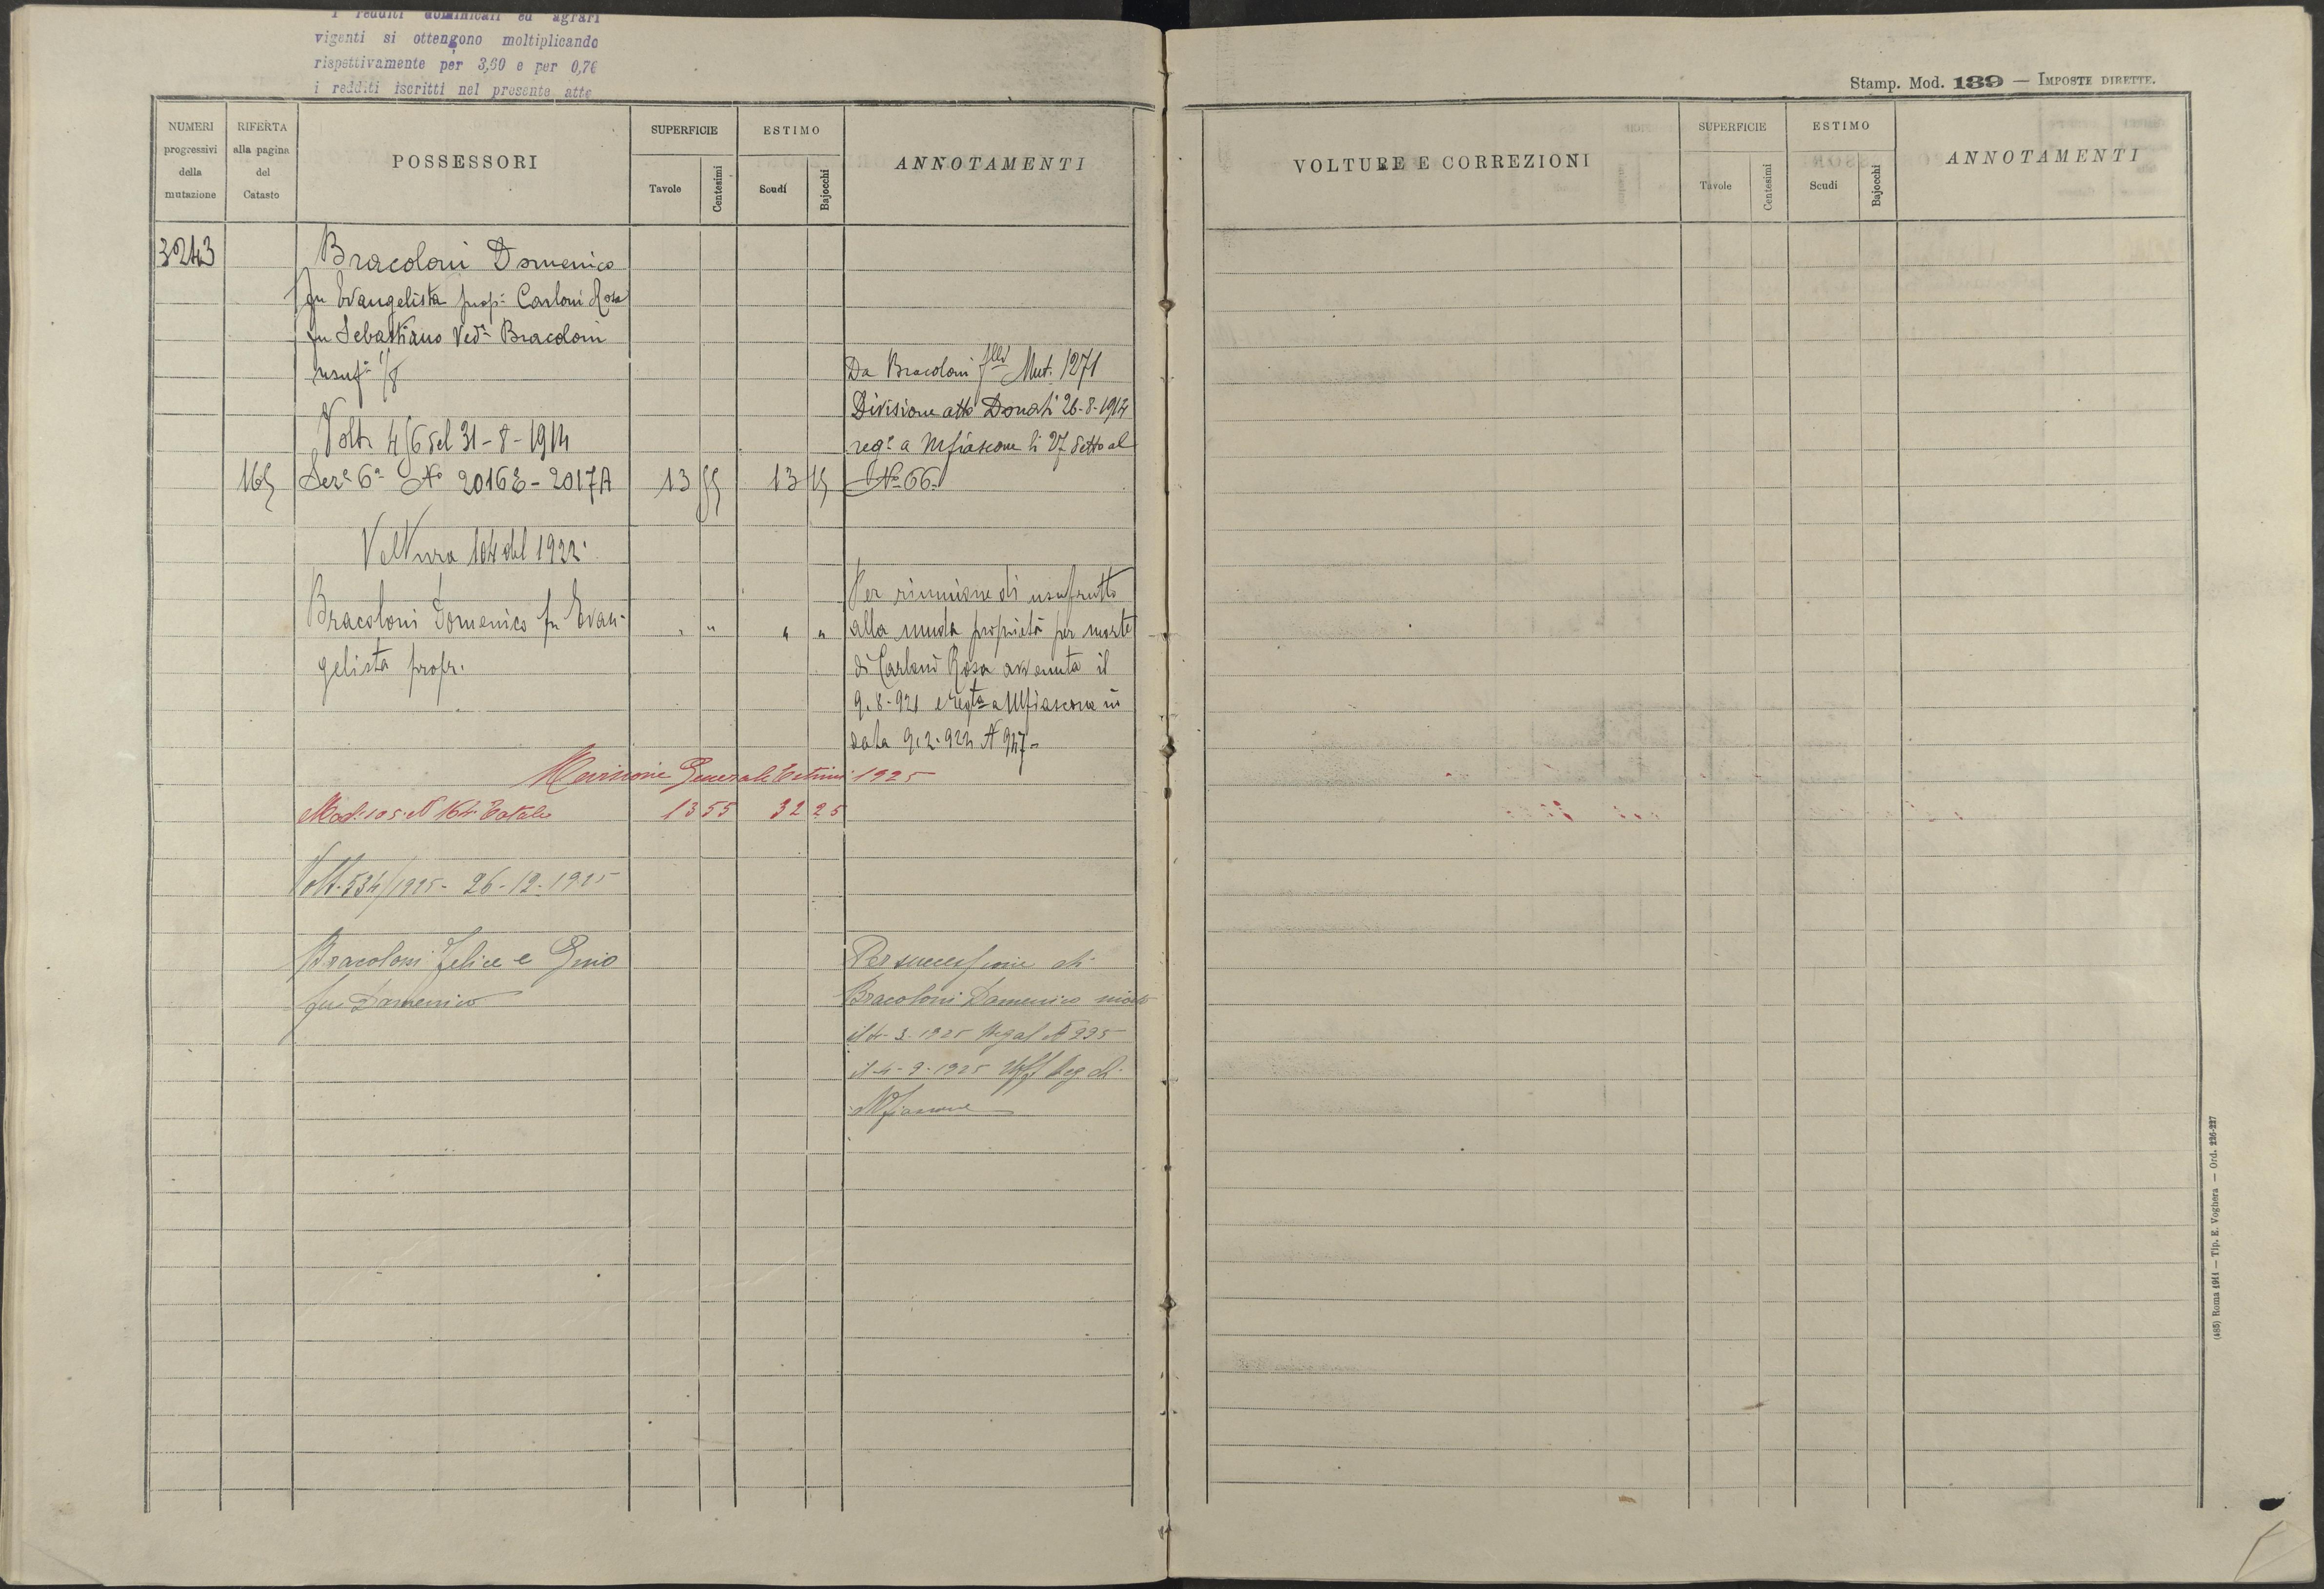 I redditi dominicali ed agrari
vigenti si ottengono moltiplicando
rispettivamente per 3,60 e per 0,76
i redditi iscritti nel presente atto
Stamp. Mod. 139 — IMPOSTE DIRETTE.
NUMERI progressivi della mutazione
RIFERTA alla pagina del Catasto
POSSESSORI
SUPERFICIE
Tavole
Centesimi
ESTIMO
Scudi
Bajocchi
ANNOTAMENTI
VOLTURE E CORREZIONI
SUPERFICIE
Tavole
Centesimi
ESTIMO
Scudi
Bajocchi
ANNOTAMENTI
3243 Bracoloni Domenico
fu Evangelista prop: Carloni Rosa
fu Sebastiano Ved: Bracoloni
usuf: 1/8
Da Bracoloni flli Mut. 1271
Divisione atto Donati 26-8-1914
Volt. 4/6 del 31-8-1914
reg: a Mfiascone li 27 detto al
165 Sez: 6ª No 2016 - 2017A 13 55 13 15 No 66.
Voltura 104 del 1922.
Per riunione di usufrutto
Bracoloni Domenico fu Evan- " " " " alla nuda proprietà per morte
gelista propr. di Carloni Rosa avvenuta il
9.8.921 e regta a Mfiascone in
data 9.2.922 N 947-
Revisione Generale Estimi 1925
Mod. 105. N 164. Totale 13 55 32 25
Volt. 534/1925 - 26-12-1925
Bracoloni Felice e Gino Per successione di
fu Domenico Bracoloni Domenico morto
il 4-3-1925 Reg al N 995
il 4-9-1925 Uff Reg di
Mfiascone
(485) Roma 1911 — Tip. E. Voghera — Ord. 226-227